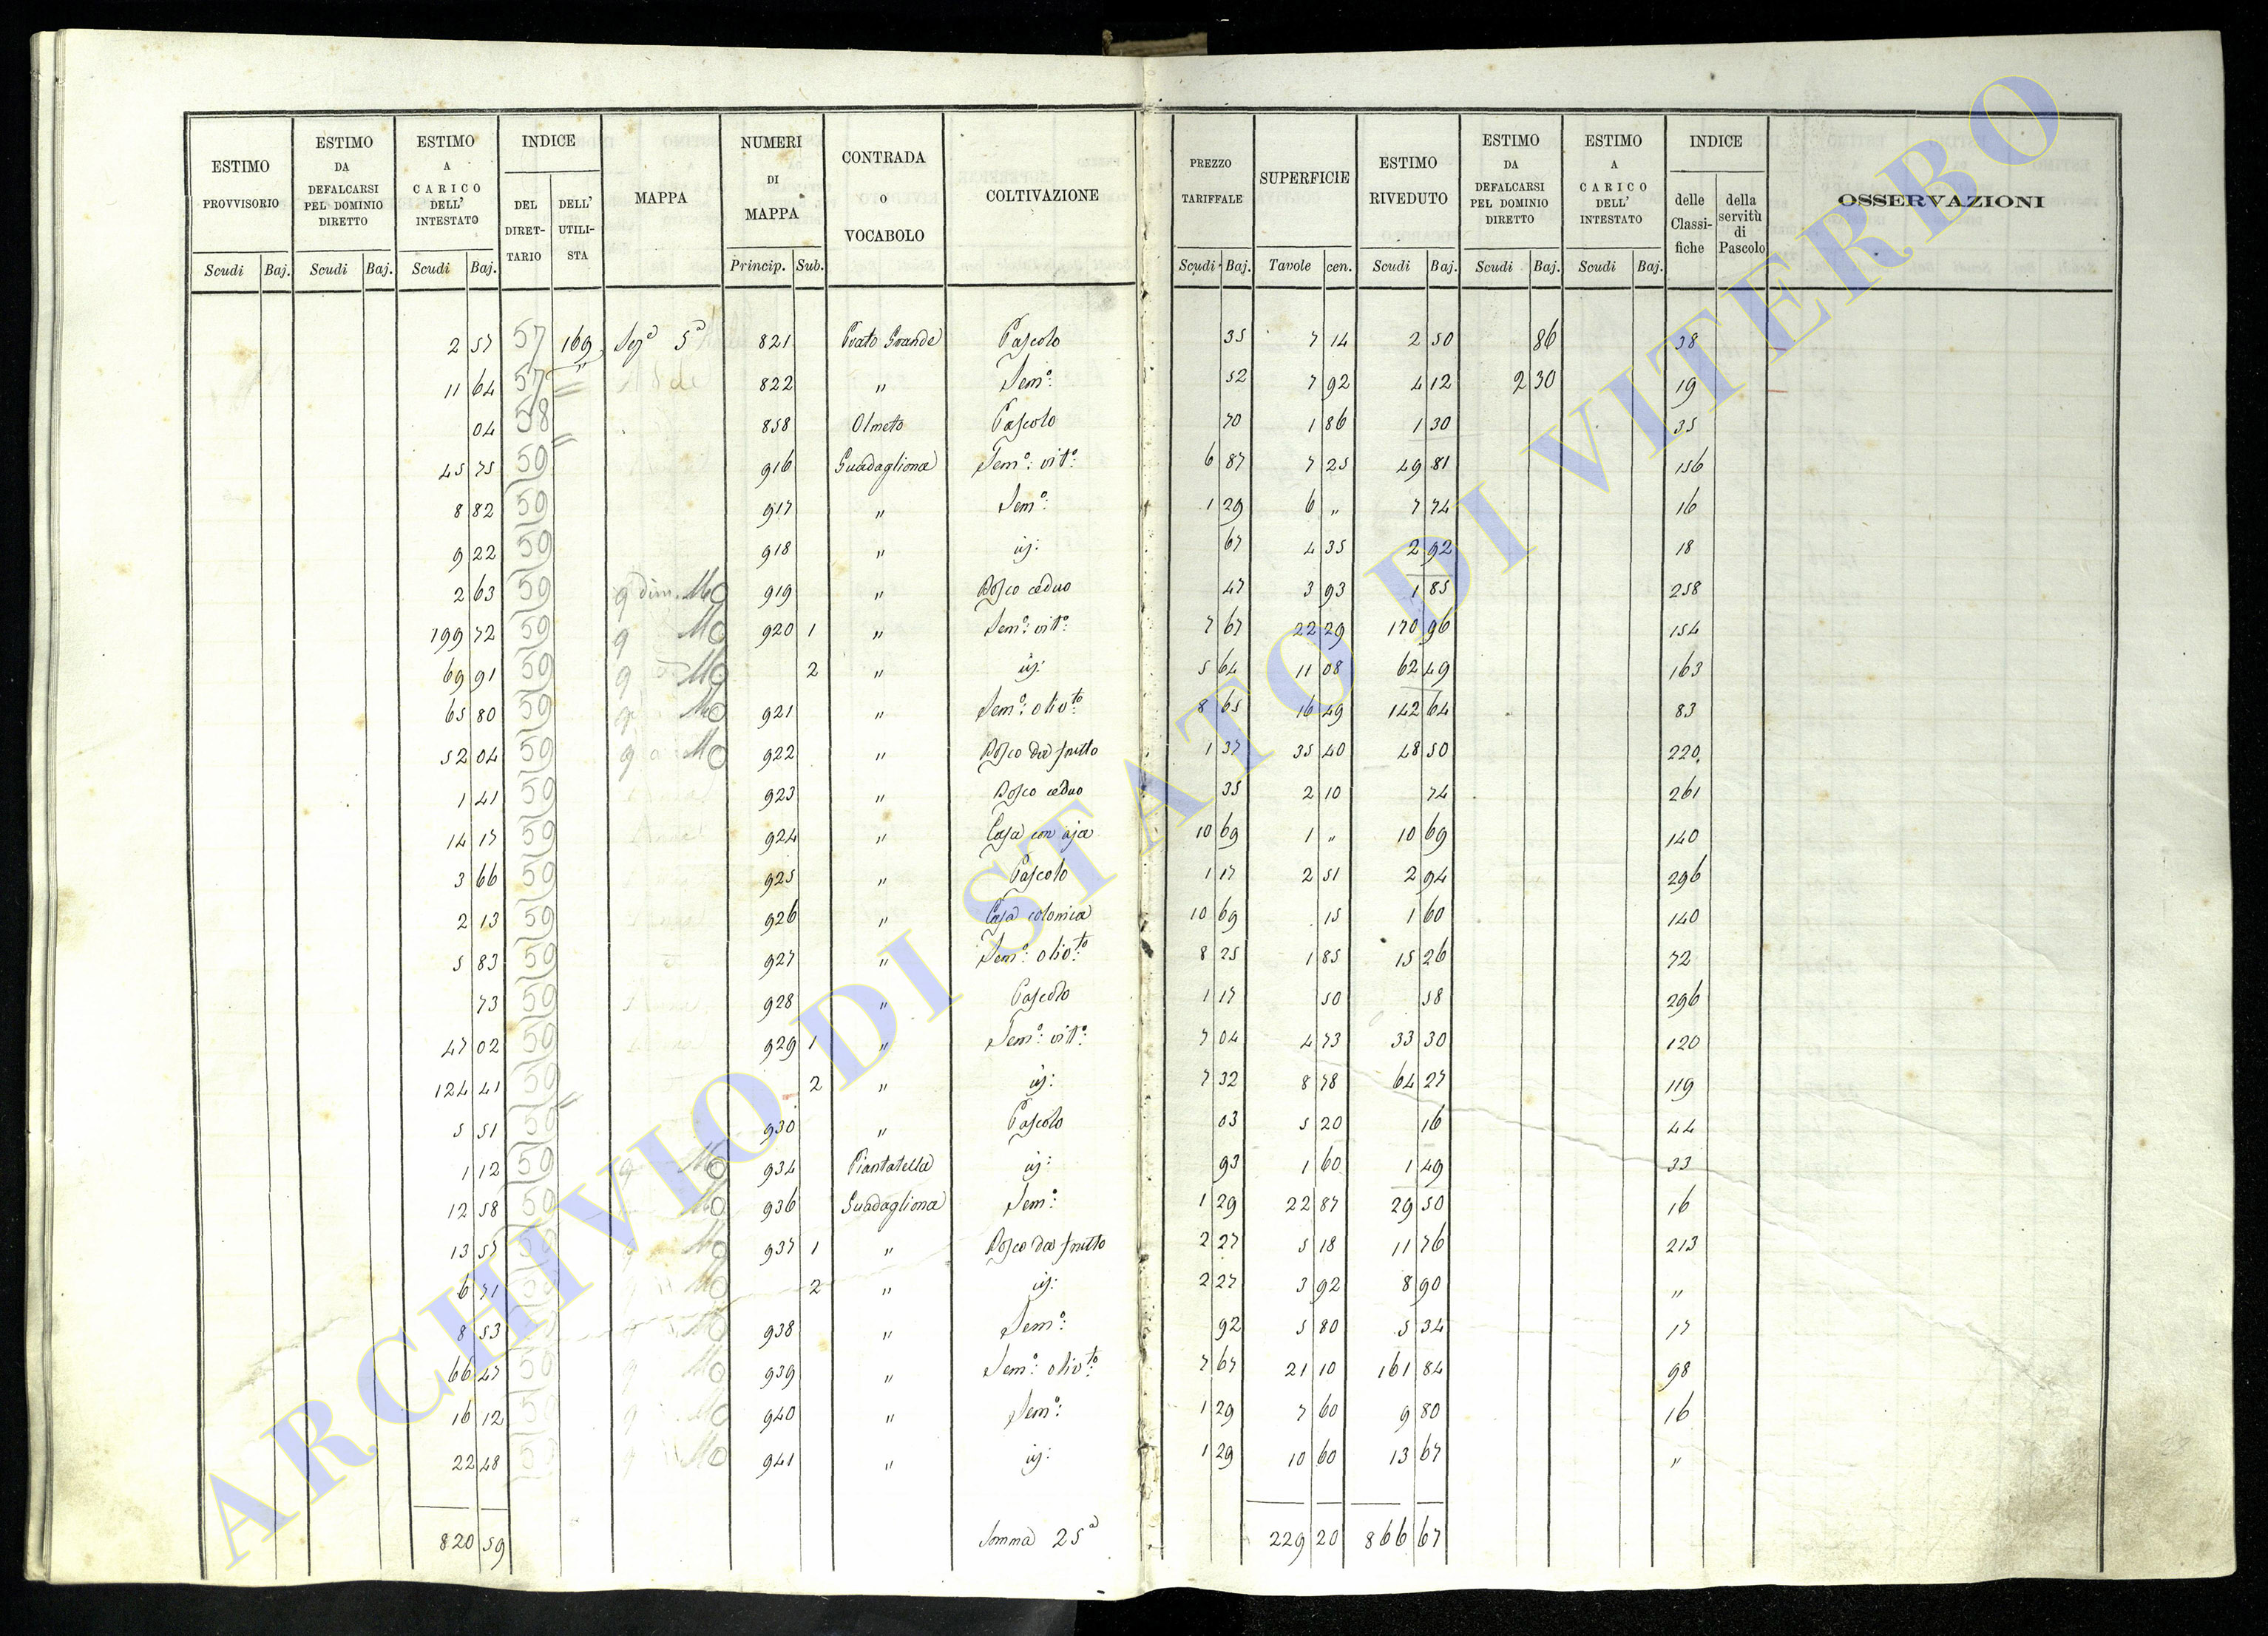 ESTIMO PROVVISORIO ESTIMO DA DEFALCARSI PEL DOMINIO DIRETTO ESTIMO A CARICO DELL' INTESTATO INDICE DEL DIRETTARIO DELL' UTILISTA MAPPA NUMERI DI MAPPA CONTRADA O VOCABOLO COLTIVAZIONE PREZZO TARIFFALE SUPERFICIE ESTIMO RIVEDUTO ESTIMO DA DEFALCARSI PEL DOMINIO DIRETTO ESTIMO A CARICO DELL' INTESTATO INDICE delle Classifiche della servitù di Pascolo OSSERVAZIONI
Scudi Baj. Scudi Baj. Scudi Baj. Princip. Sub. Scudi Baj. Tavole cen. Scudi Baj. Scudi Baj. Scudi Baj.
2 57 57 169 Sez.a 5a 821 Prato Grande Pascolo 35 7 14 2 50 86 38
11 64 57 " 822 " Sem.o: 52 7 92 4 12 2 30 19
04 58 858 Olmeto Pascolo 70 1 86 1 30 35
45 75 59 916 Guadagliona Sem.o: vit.o: 6 87 7 25 49 81 156
8 82 59 917 " Sem.o: 1 29 6 " 7 74 16
9 22 59 918 " id: 67 4 35 2 92 18
2 63 59 919 " Bosco ceduo 47 3 93 1 85 258
199 72 59 920 1 " Sem.o: vit.o: 7 67 22 29 170 96 154
69 91 59 2 " id: 5 64 11 08 62 49 163
65 80 59 921 " Sem.o: oliv.to: 8 65 16 49 142 64 83
52 04 59 922 " Bosco da frutto 1 37 35 40 48 50 220
1 41 59 923 " Bosco ceduo 35 2 10 74 261
14 17 59 924 " Casa con aja 10 69 1 " 10 69 140
3 66 59 925 " Pascolo 1 17 2 51 2 94 296
2 13 59 926 " Casa colonica 10 69 15 1 60 140
5 83 59 927 " Sem.o: oliv.to: 8 25 1 85 15 26 72
73 59 928 " Pascolo 1 17 50 58 296
47 02 59 929 1 " Sem.o: vit.o: 7 04 4 73 33 30 120
124 41 59 2 " id: 7 32 8 78 64 27 119
5 51 59 930 " Pascolo 03 5 20 16 44
1 12 59 934 Piantatella id: 93 1 60 1 49 33
12 58 59 936 Guadagliona Sem.o: 1 29 22 87 29 50 16
13 57 59 937 1 " Bosco da frutto 2 27 5 18 11 76 213
6 71 59 2 " id: 2 27 3 92 8 90 "
8 53 938 " Sem.o: 92 5 80 5 34 17
66 47 59 939 " Sem.o: oliv.to: 7 67 21 10 161 84 98
16 12 59 940 " Sem.o: 1 29 7 60 9 80 16
22 48 59 941 " id: 1 29 10 60 13 67 "
820 59 Somma 25a 229 20 866 67
ARCHIVIO DI STATO DI VITERBO